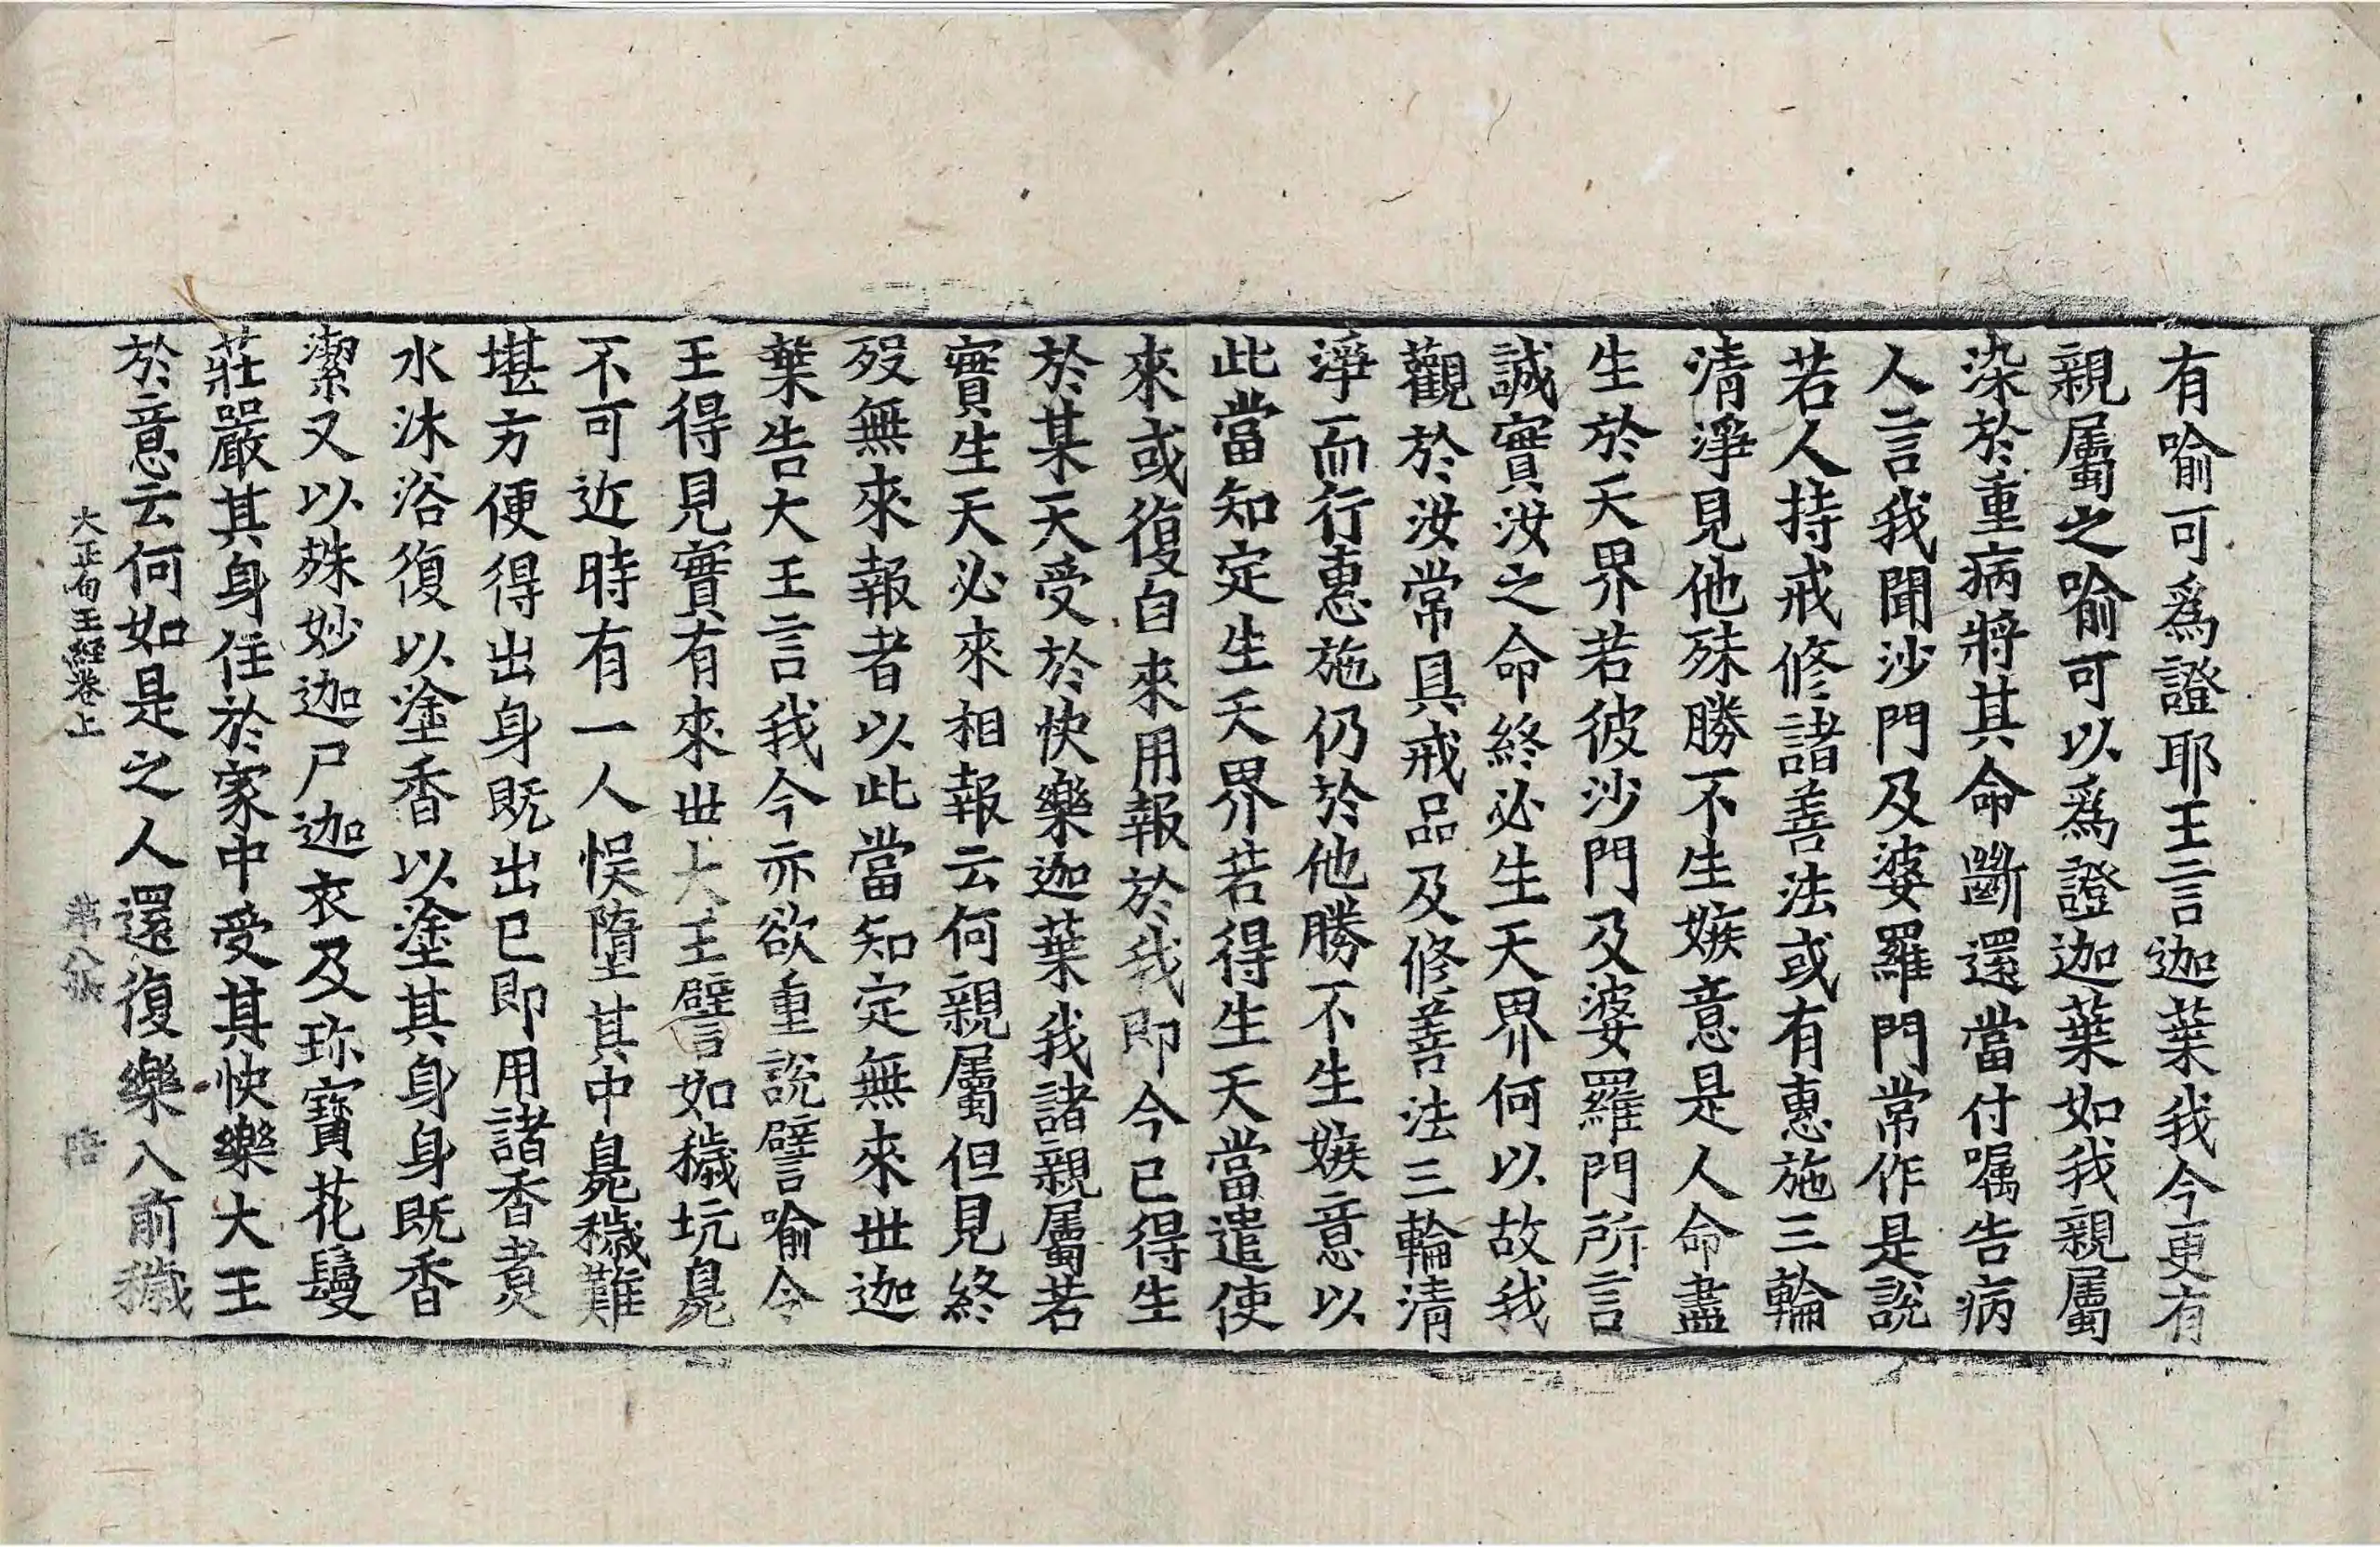 有喻可爲證耶王言迦葉我今更有
親屬之喻可以爲證迦葉如我親屬
染於重病將其命斷還當付嘱告病
人言我聞沙門及婆羅門常作是說
若人持戒修諸善法或有惠施三輪
清淨見他殊勝不生嫉意是人命盡
生於天界若彼沙門及婆羅門所言
誠實汝之命終必生天界何以故我
觀於汝常具戒品及修善法三輪清
淨而行惠施仍於他勝不生嫉意以
此當知定生天界若得生天當遣使
來或復自來用報於我即今已得生
於某天受於快樂迦葉我諸親屬若
實生天必來相報云何親屬但見終
歿無來報者以此當知定無來世迦
葉告大王言我今亦欲重說譬喻令
王得見實有來世大王譬如穢坑臭
不可近時有一人悞墮其中臭穢難
堪方便得出身既出已即用諸香煑
水沐浴復以塗香以塗其身身既香
潔又以殊妙迦尸迦衣及珎寶花鬘
莊嚴其身住於家中受其快樂大王
於意云何如是之人還復樂入前穢
大正句王經卷上 第八張